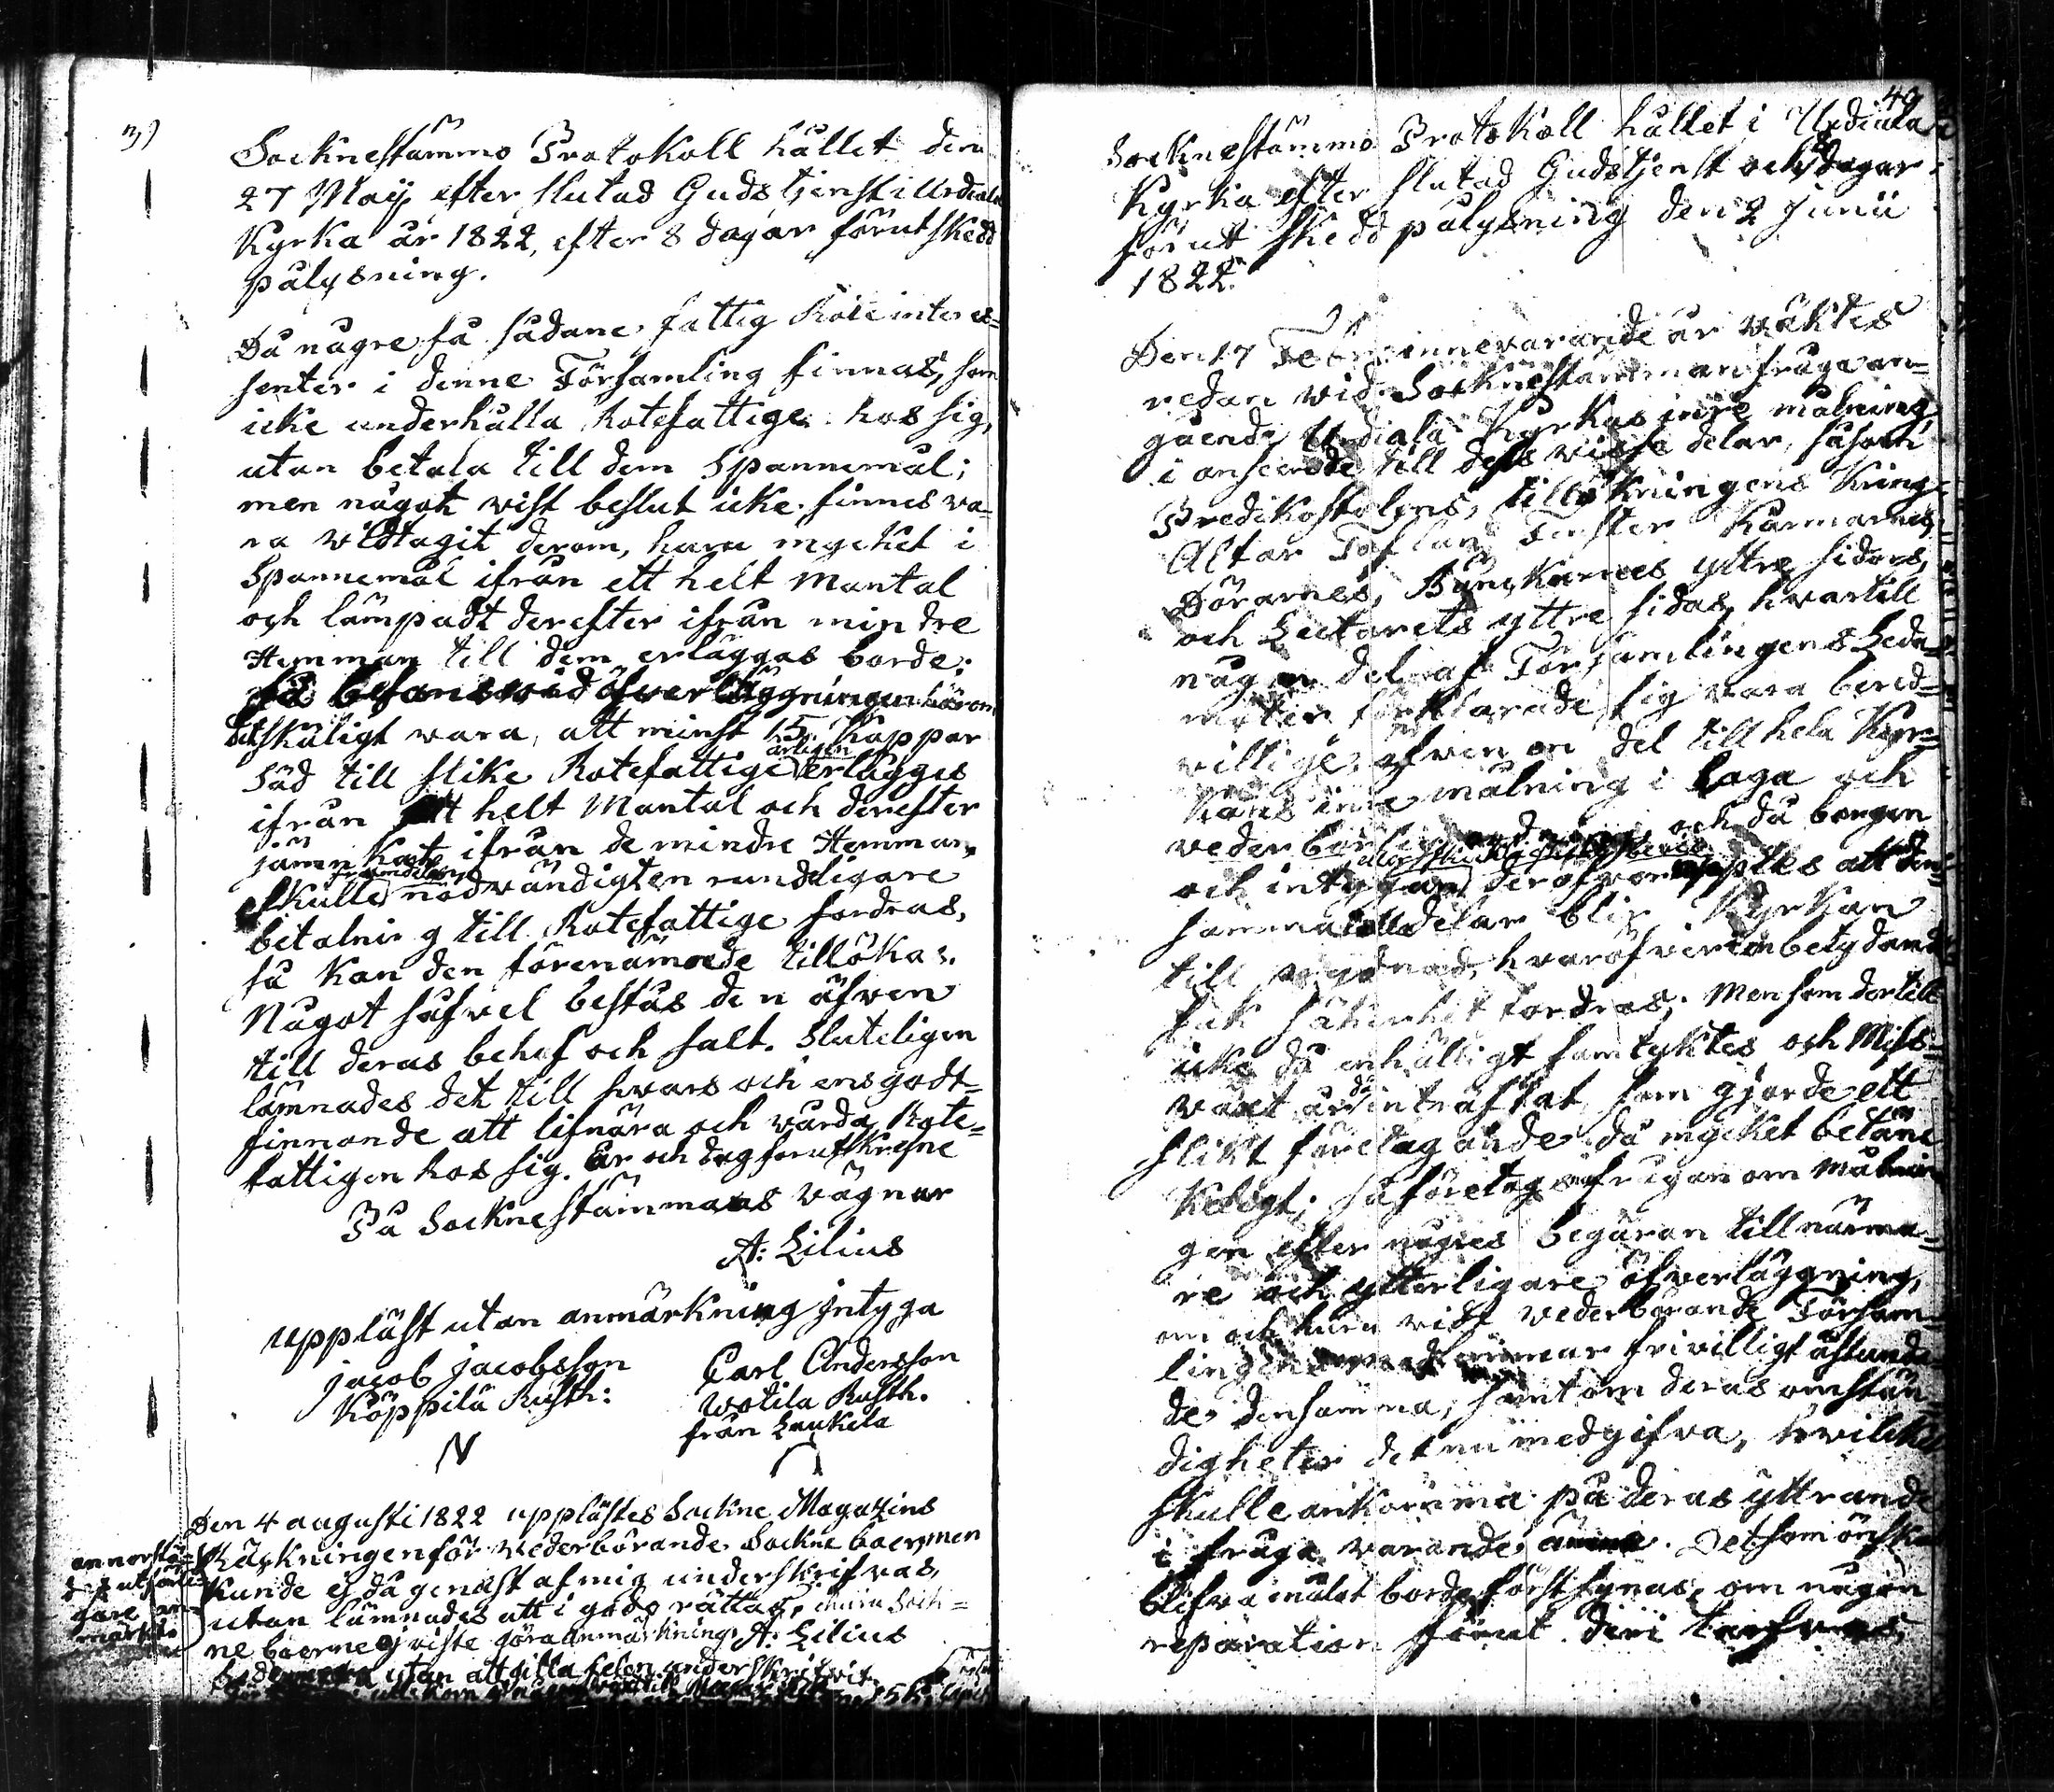 39
Socknestämmo Protokoll hållet den
27 Maij efter slutad Gudstjenst i Urdiala
Kyrka år 1822, efter 8 dagar förut skedd
pålysning.
Då någre få sådane fattig Roteinteres=
senter i denne Församling finnas, som
icke underhålla Rotefattige hos sig,
utan betala till dem Spannemål;
men något vist beslut icke finnes va=
ra vidtagit derom, huru mycket i
Spannemål ifrån ett helt Mantal
och lämpadt derefter ifrån mindre
Hemman till dem erläggas borde;
så befans vid öfverläggningen härom
det skäligt vara, att minst 15 Kappar
Säd till slike Rotefattige årligen erlägges
ifrån ett helt Mantal och derefter
jämnkadt ifrån de mindre Hemman,
skulle framdeles nödvändigten rundeligare
betalning till Rotefattige fordras,
så kan den förenämnde tillökas.
Något såfvel bestås den äfven
till deras behof och salt. Sluteligen
lämnades det till hvars och ens godt=
finnande att lifnära och vårda Rote=
fattigen hos sig. År och dag förutskrefne
På Socknestämmans vägnar
A: Lilius
Uppläst utan anmärkning intyga
Jacob Jacobsson Carl Andersson
Köppilä Rusth: Wotila Rusth.
från Laukela
Den 4 augusti 1822 upplästes Sockne Magazins
Räkningen för vederbörande Sockne boer, men
kunde ej då genast af mig underskrifvas,
utan lämnades att i godo rättas, Sock=
ne boerne ej viste göra anmärkning. A: Lilius
utan att gilla felen underskrifvit
40
Socknestämmo Protokoll hållet i Urdiala
Kyrka efter slutad Gudstjenst och 8 dagar
förut skedd pålysning den 2 Junii
1822.
Den 17 Febr: innevarande år väktes
redan vid Socknestämman fråga an=
gående Urdiala Kyrkas inre målning,
i anseende till dess vissa delar, såsom
Predikostolens, tillökningens kring
Altar Taflan, Fenster Karmarnes,
Dörarnes, Bänckarnes yttre sidors,
och Lectarets yttre sidas, hvartill
någon del af Församlingens Leda=
möter förklarade sig vara bered=
villige, äfven en del till hela Kyr=
kans inre målning i laga och
vederbörlig ordning och då borgen
och intygan deröfver upptes att den=
samma delar blir Kyrkan
till prydnad, hvaröfver en betydande
säkerhet fordras; Men som dertill
icke då enhälligt samtyktes och Miss=
växt år då inträffat, som gjorde ett
slikt företagande då mycket betänk=
keligt; så företogs frågan om Målnin=
gen efter någres begäran till närma=
re och ytterligare öfverläggning,
om och huru vidt vederbörande Försam=
lingens medlemmar frivilligt åstunda=
de densamma, samt om deras omstän=
digheter det nu medgifva, hvilket
skulle ankomma på deras yttrande
i fråga varande ämne. Det som önskas
blifva målat borde först synas, om någon
reparation förut deri tarfvas,